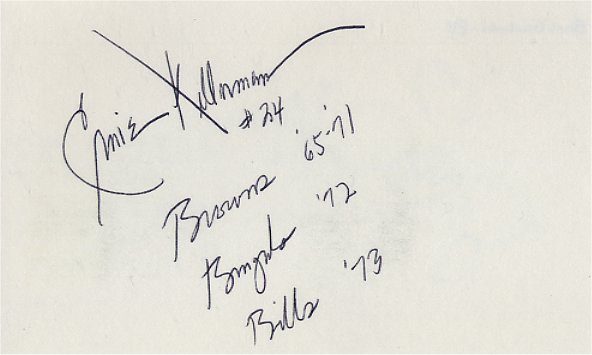 Ernie Kellerman
#24
Browns '65-'71
Bengals '72
Bills '73